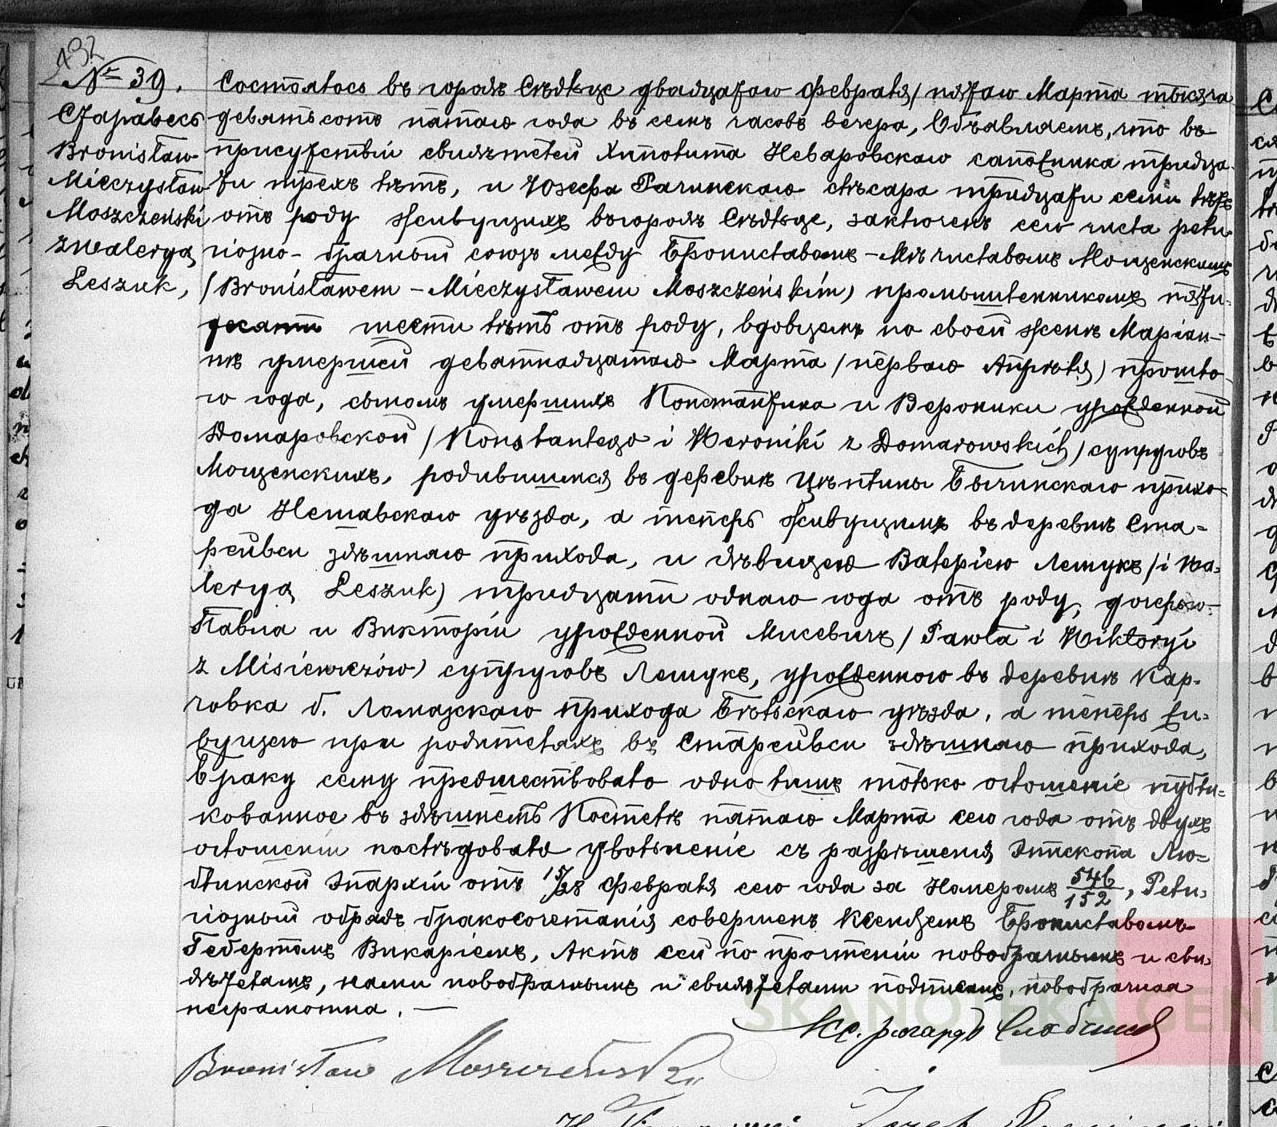 432
№ 39.
Старавесь
Bronisław-
Mieczysław
Moszczeński
z Waleryą
Leszuk,
Состоялось въ городѣ Сѣдльце двадцатаго Февраля/пятаго Марта тысяча
девятьсотъ пятаго года въ семь часовъ вечера, Объявляемъ, что въ
присутствіи свидѣтелей Хиполита Неваровскаго сапожника тридца-
ти трехъ лѣтъ, и Юзефа Рачинскаго слѣсара тридцати семи лѣтъ
отъ роду живущихъ въ городѣ Сѣдльце, заключенъ сего числа рели-
гіозно-брачный союзъ между Брониславомъ-Мѣчиславомъ Мощенскимъ
/Bronisławem-Mieczysławem Moszczeńskim/ промышленникомъ пяти-
десяти шести лѣтъ отъ роду, вдовцемъ по своей женѣ Маріан-
нѣ умершей девятнадцатаго Марта/перваго Апрѣля/ прошло-
го года, сыномъ умершихъ Константина и Вероники урожденной
Домаровской /Konstantego i Weroniki z Domarowskich/ супруговъ
Мощенскихъ, родившимся въ деревнѣ прихо-
да уѣзда, а теперь живущимъ въ деревнѣ Ста-
рейвси здѣшняго прихода, и дѣвицею Валеріею Лешукъ /i Wa-
leryą Leszuk/ тридцати одного года отъ роду, дочерью
Павла и Викторіи урожденной Мисевичъ /Pawła i Wiktoryi
z Misiewiczów/ супруговъ Лешукъ, урожденною въ деревнѣ Кар-
човка б. Ломазскаго прихода Бѣльскаго уѣзда, а теперь жи-
вущею при родителяхъ въ Старейвси здѣшняго прихода,
Браку сему предшествовало одно лишь только оглашеніе публи-
кованное въ здѣшнемъ Костелѣ пятаго Марта сего года отъ двухъ
оглашеній послѣдовало увольненіе съ разрѣшенія Эпископа Лю-
блинской Эпархіи отъ 15/28 Февраля сего года за Номеромъ 546/152, Рели-
гіозный обрядъ бракосочетанія совершенъ Ксендземъ Брониславомъ
Гебертомъ Викаріемъ, Актъ сей по прочтеніи новобрачнымъ и сви-
дѣтелямъ, нами новобрачнымъ и свидѣтелями подписанъ, новобрачная
неграмотна. —
Кс.
Bronisław Moszczeński
Józef
SKANOTEKA GEN